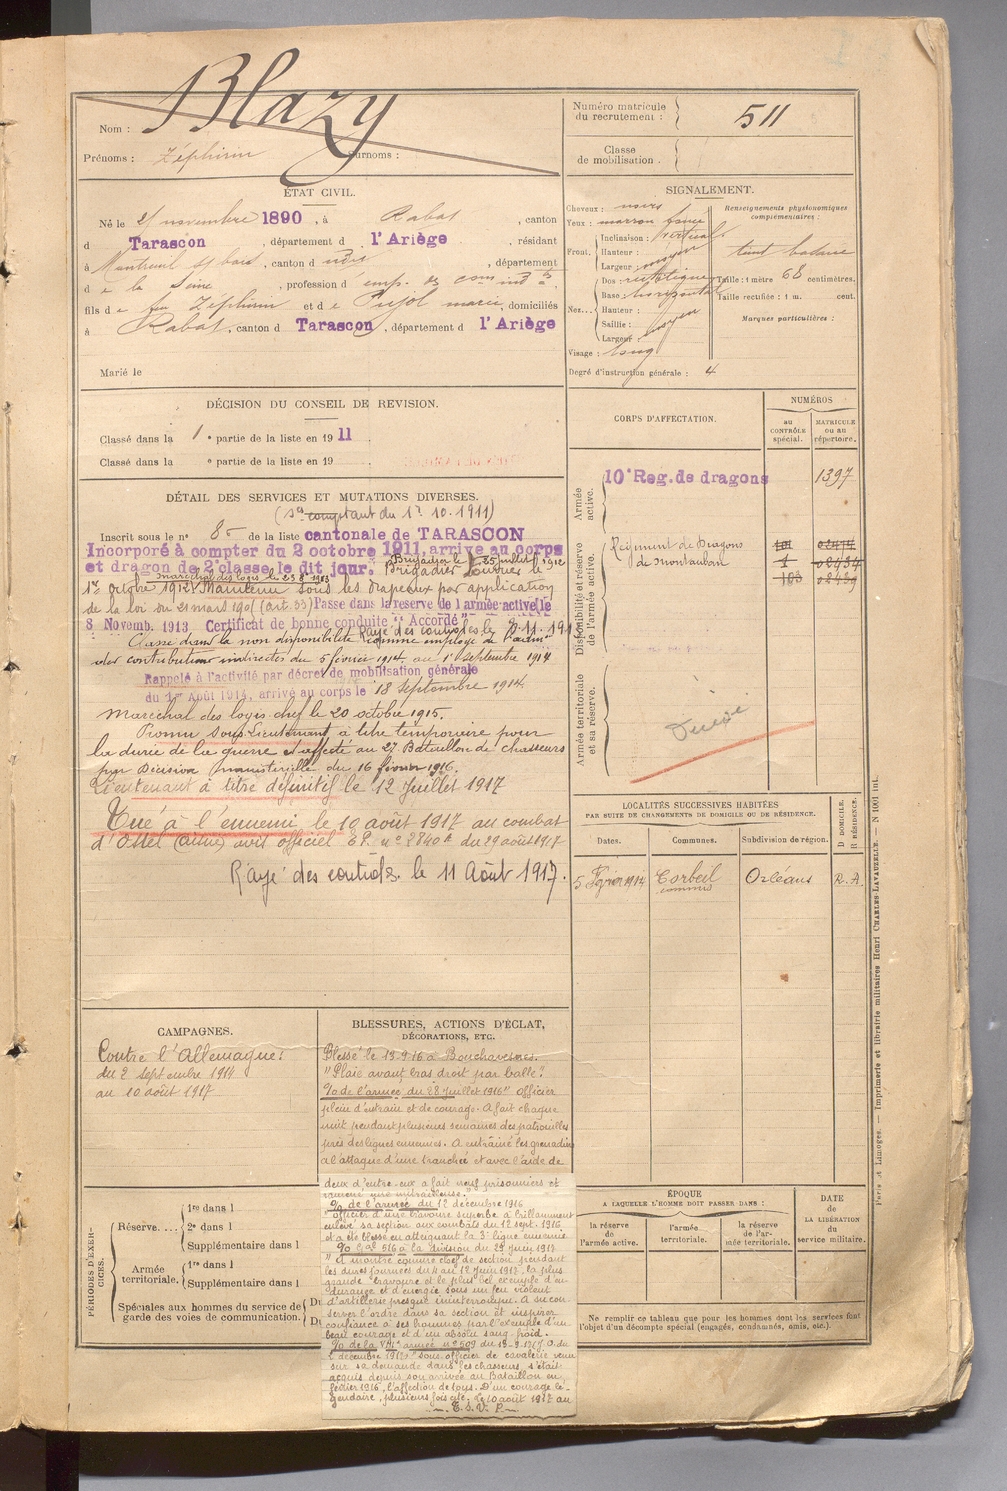 Nom : Blazy
Prénoms : Zéphirin Surnoms :
Numéro matricule du recrutement : 511
Classe de mobilisation :
ÉTAT CIVIL.
Né le novembre 1890, à Rabat, canton
d Tarascon, département d l'Ariège, résidant
à Montreuil s/ bois, canton d dudit, département
d e la Seine, profession d emp.
fils d e feu Zéphirin et d e Pujol Marie, domiciliés
à Rabat, canton d Tarascon, département d l'Ariège
Marié le
SIGNALEMENT.
Cheveux : noirs
Yeux : marron foncé
Front, Inclinaison : vertical
Hauteur :
Largeur : moyen
Nez... Dos : rectiligne
Base : horizontal
Hauteur :
Saillie :
Largeur : moyen
Visage : long
Degré d'instruction générale : 4
Renseignements physionomiques complémentaires :
Taille : 1 mètre 68 centimètres.
Taille rectifiée : 1 m. cent.
Marques particulières :
DÉCISION DU CONSEIL DE REVISION.
Classé dans la 1 e partie de la liste en 1911.
Classé dans la e partie de la liste en 19 .
CORPS D'AFFECTATION.
NUMÉROS
au CONTRÔLE spécial.
MATRICULE ou au répertoire.
Armée active.
10e Reg. de dragons 1397
Disponibilité et réserve de l'armée active.
Régiment de Dragons
de Montauban
Armée territoriale et sa réserve.
DÉTAIL DES SERVICES ET MUTATIONS DIVERSES.
(Ses comptant du 1er 10.1911)
Inscrit sous le n° 85 de la liste cantonale de TARASCON
Incorporé à compter du 2 octobre 1911, arrivé au corps
et dragon de 2e classe le dit jour. Brigadier le juillet 1912
Brigadier fourrier le
maréchal des logis, le 23 8bre 1913
1er octobre 1912. Maintenu sous les drapeaux par application
de la loi du 21 mars 1905 (art. 33) Passe dans la réserve de l'armée active le
8 Novemb. 1913 Certificat de bonne conduite "Accordé"
Rayé des contrôles le 8.11.191
Classé dans la non disponibilité comme employé de l'admon
des contributions indirectes du 5 février 1914. au 1er septembre 1914
Rappelé à l'activité par décret de mobilisation générale
du 1er Août 1914, arrivé au corps le 18 septembre 1914.
Maréchal des logis chef le 20 octobre 1915.
Promu Sous Lieutenant à titre temporaire pour
la durée de la guerre et affecté au 27 Bataillon de Chasseurs
par Décision ministérielle du 16 février 1916.
Lieutenant à titre définitif le 12 Juillet 1917
Tué à l'ennemi le 10 août 1917 au combat
d'Ostel (Aisne) avis officiel du 29 août 1917
Rayé des contrôles le 11 Août 1917.
LOCALITÉS SUCCESSIVES HABITÉES
PAR SUITE DE CHANGEMENTS DE DOMICILE OU DE RÉSIDENCE.
Dates. Communes. Subdivision de région. D DOMICILE. R RÉSIDENCE.
5 Février 1914 Corbeil Orléans R.A.
commis
CAMPAGNES.
Contre l'Allemagne :
du 2 septembre 1914
au 10 août 1917
BLESSURES, ACTIONS D'ÉCLAT, DÉCORATIONS, ETC.
Blessé le 13-9-16 à Bouchavesnes.
"Plaie avant bras droit par balle".
% de l'armée, du 28 Juillet 1916" officier
plein d'entrain et de courage. A fait chaque
nuit pendant plusieurs semaines des patrouilles
près des lignes ennemies. A entraîné les grenadiers
à l'attaque d'une tranchée et avec l'aide de
deux d'entre eux a fait neuf prisonniers et
ramené une mitrailleuse."
% de l'armée du 12 décembre 1916
"officier d'une bravoure superbe a brillamment
enlevé sa section aux combats du 12 sept. 1916
et a été blessé en attaquant la 3e ligne ennemie
% n° 516 à la division du 25 juin 1917
"A montré comme chef de section pendant
les dures journées du 4 au 12 juin 1917, la plus
grande bravoure et le plus bel exemple d'en-
durance et d'énergie sous un feu violent
d'artillerie presque ininterrompu. A su con-
server l'ordre dans sa section et inspirer
confiance à ses hommes par l'exemple d'un
beau courage et d'un absolu sang-froid.
% de la VIe armée n° 509 du 18-9-1917
sous officier de cavalerie venu
sur sa demande dans les chasseurs s'était
acquis depuis son arrivée au Bataillon en
février 1916, l'affection de tous. D'un courage lé-
gendaire, plusieurs fois cité. Le 10 août 1917 au
T.S.V.P.
PÉRIODES D'EXERCICES.
Réserve.... 1re dans l
2e dans l
Supplémentaire dans l
Armée territoriale. 1re dans l
Supplémentaire dans l
Spéciales aux hommes du service de garde des voies de communication. Du
Du
ÉPOQUE
A LAQUELLE L'HOMME DOIT PASSER DANS :
la réserve de l'armée active.
l'armée territoriale.
la réserve de l'armée territoriale.
DATE DE LA LIBÉRATION du service militaire.
Ne remplir ce tableau que pour les hommes dont les services font
l'objet d'un décompte spécial (engagés, condamnés, omis, etc.).
Paris et Limoges. — Imprimerie et librairie militaires Henri CHARLES-LAVAUZELLE. — N 1001 int.